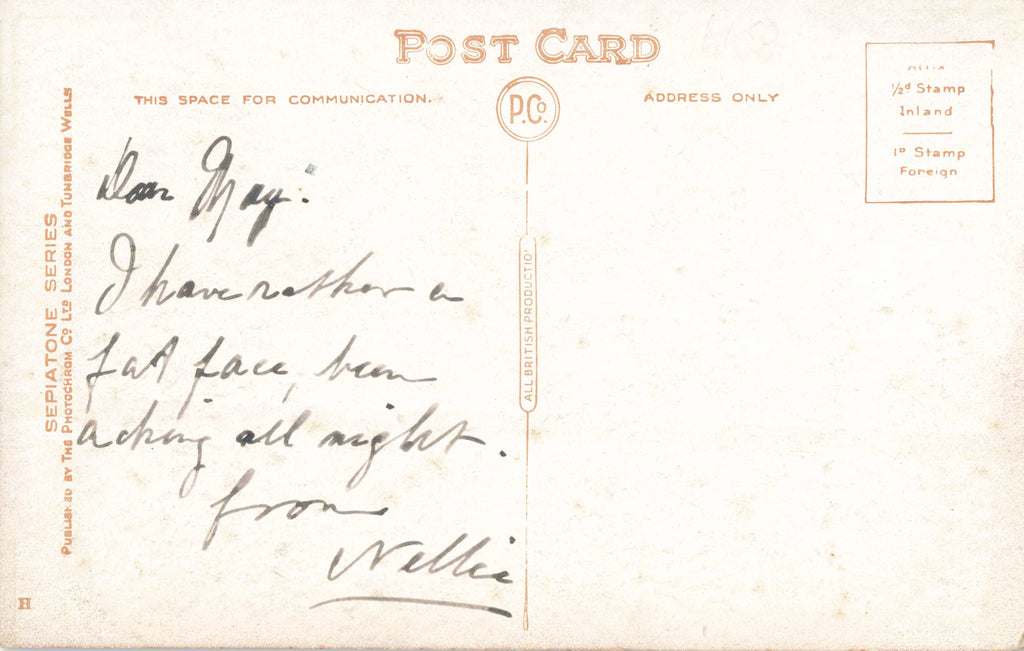 POST CARD
THIS SPACE FOR COMMUNICATION.
P.Co.
ADDRESS ONLY
AFFIX
½d Stamp
Inland
1D Stamp
Foreign
Dear May:
I have rather a
fat face, been
aching all night.
from
Nellie
ALL BRITISH PRODUCTIO
SEPIATONE SERIES
PUBLISHED BY THE PHOTOCHROM CO LTD LONDON AND TUNBRIDGE WELLS
H